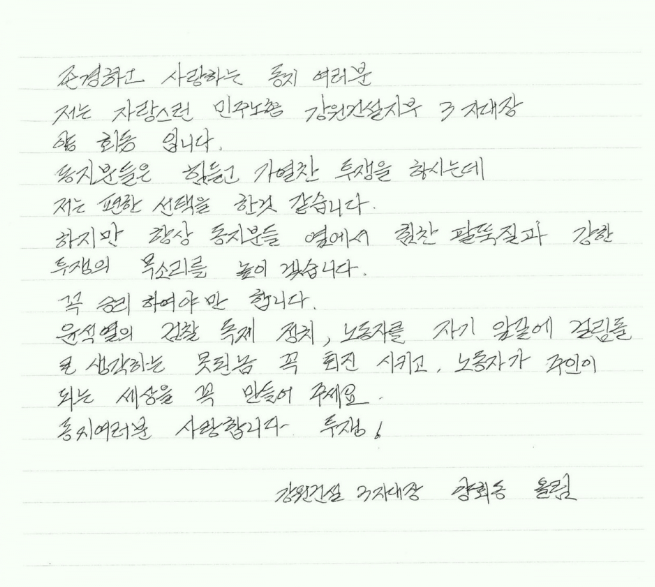 존경하고 사랑하는 동지 여러분
저는 자랑스런 민주노총 강원건설지부 3지대장
양 회동 입니다.
동지분들은 힘들고 가열찬 투쟁을 하시는데
저는 편한 선택을 한것 같습니다.
하지만 항상 동지분들 옆에서 힘찬 팔뚝질과 강한
투쟁의 목소리를 높이 겠습니다.
꼭 승리 하여야만 합니다.
윤석열의 검찰 독재 정치, 노동자를 자기 앞길에 걸림돌
로 생각하는 못된놈 꼭 퇴진 시키고, 노동자가 주인이
되는 세상을 꼭 만들어 주세요.
동지여러분 사랑합니다 투쟁!
강원건설 3지대장 양회동 올림